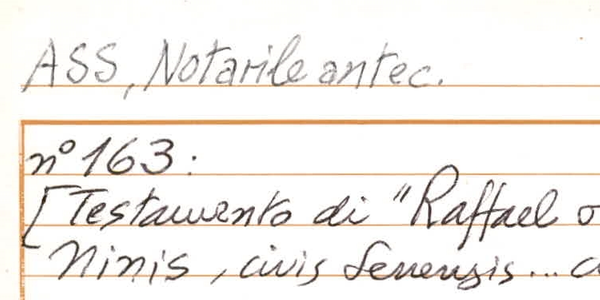 ASS, Notarile antec.
n° 163:
[Testamento di "Raffael
Ninis, civis Senensis...